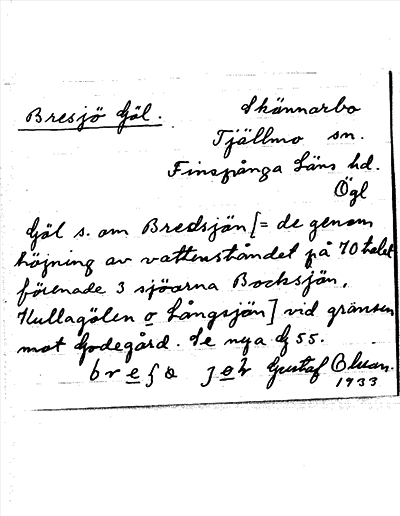 Bresjö Göl.
Skännarbo
Tjällmo sn.
Finspånga Läns hd.
Ögl
Göl s. om Bredsjön [= de genom
höjning av vattenståndet på 70 talet
förenade 3 sjöarna Bocksjön,
Kullagölen o Långsjön] vid gränsen
mot Godegård. Se nya G 55.
Gustaf
1933